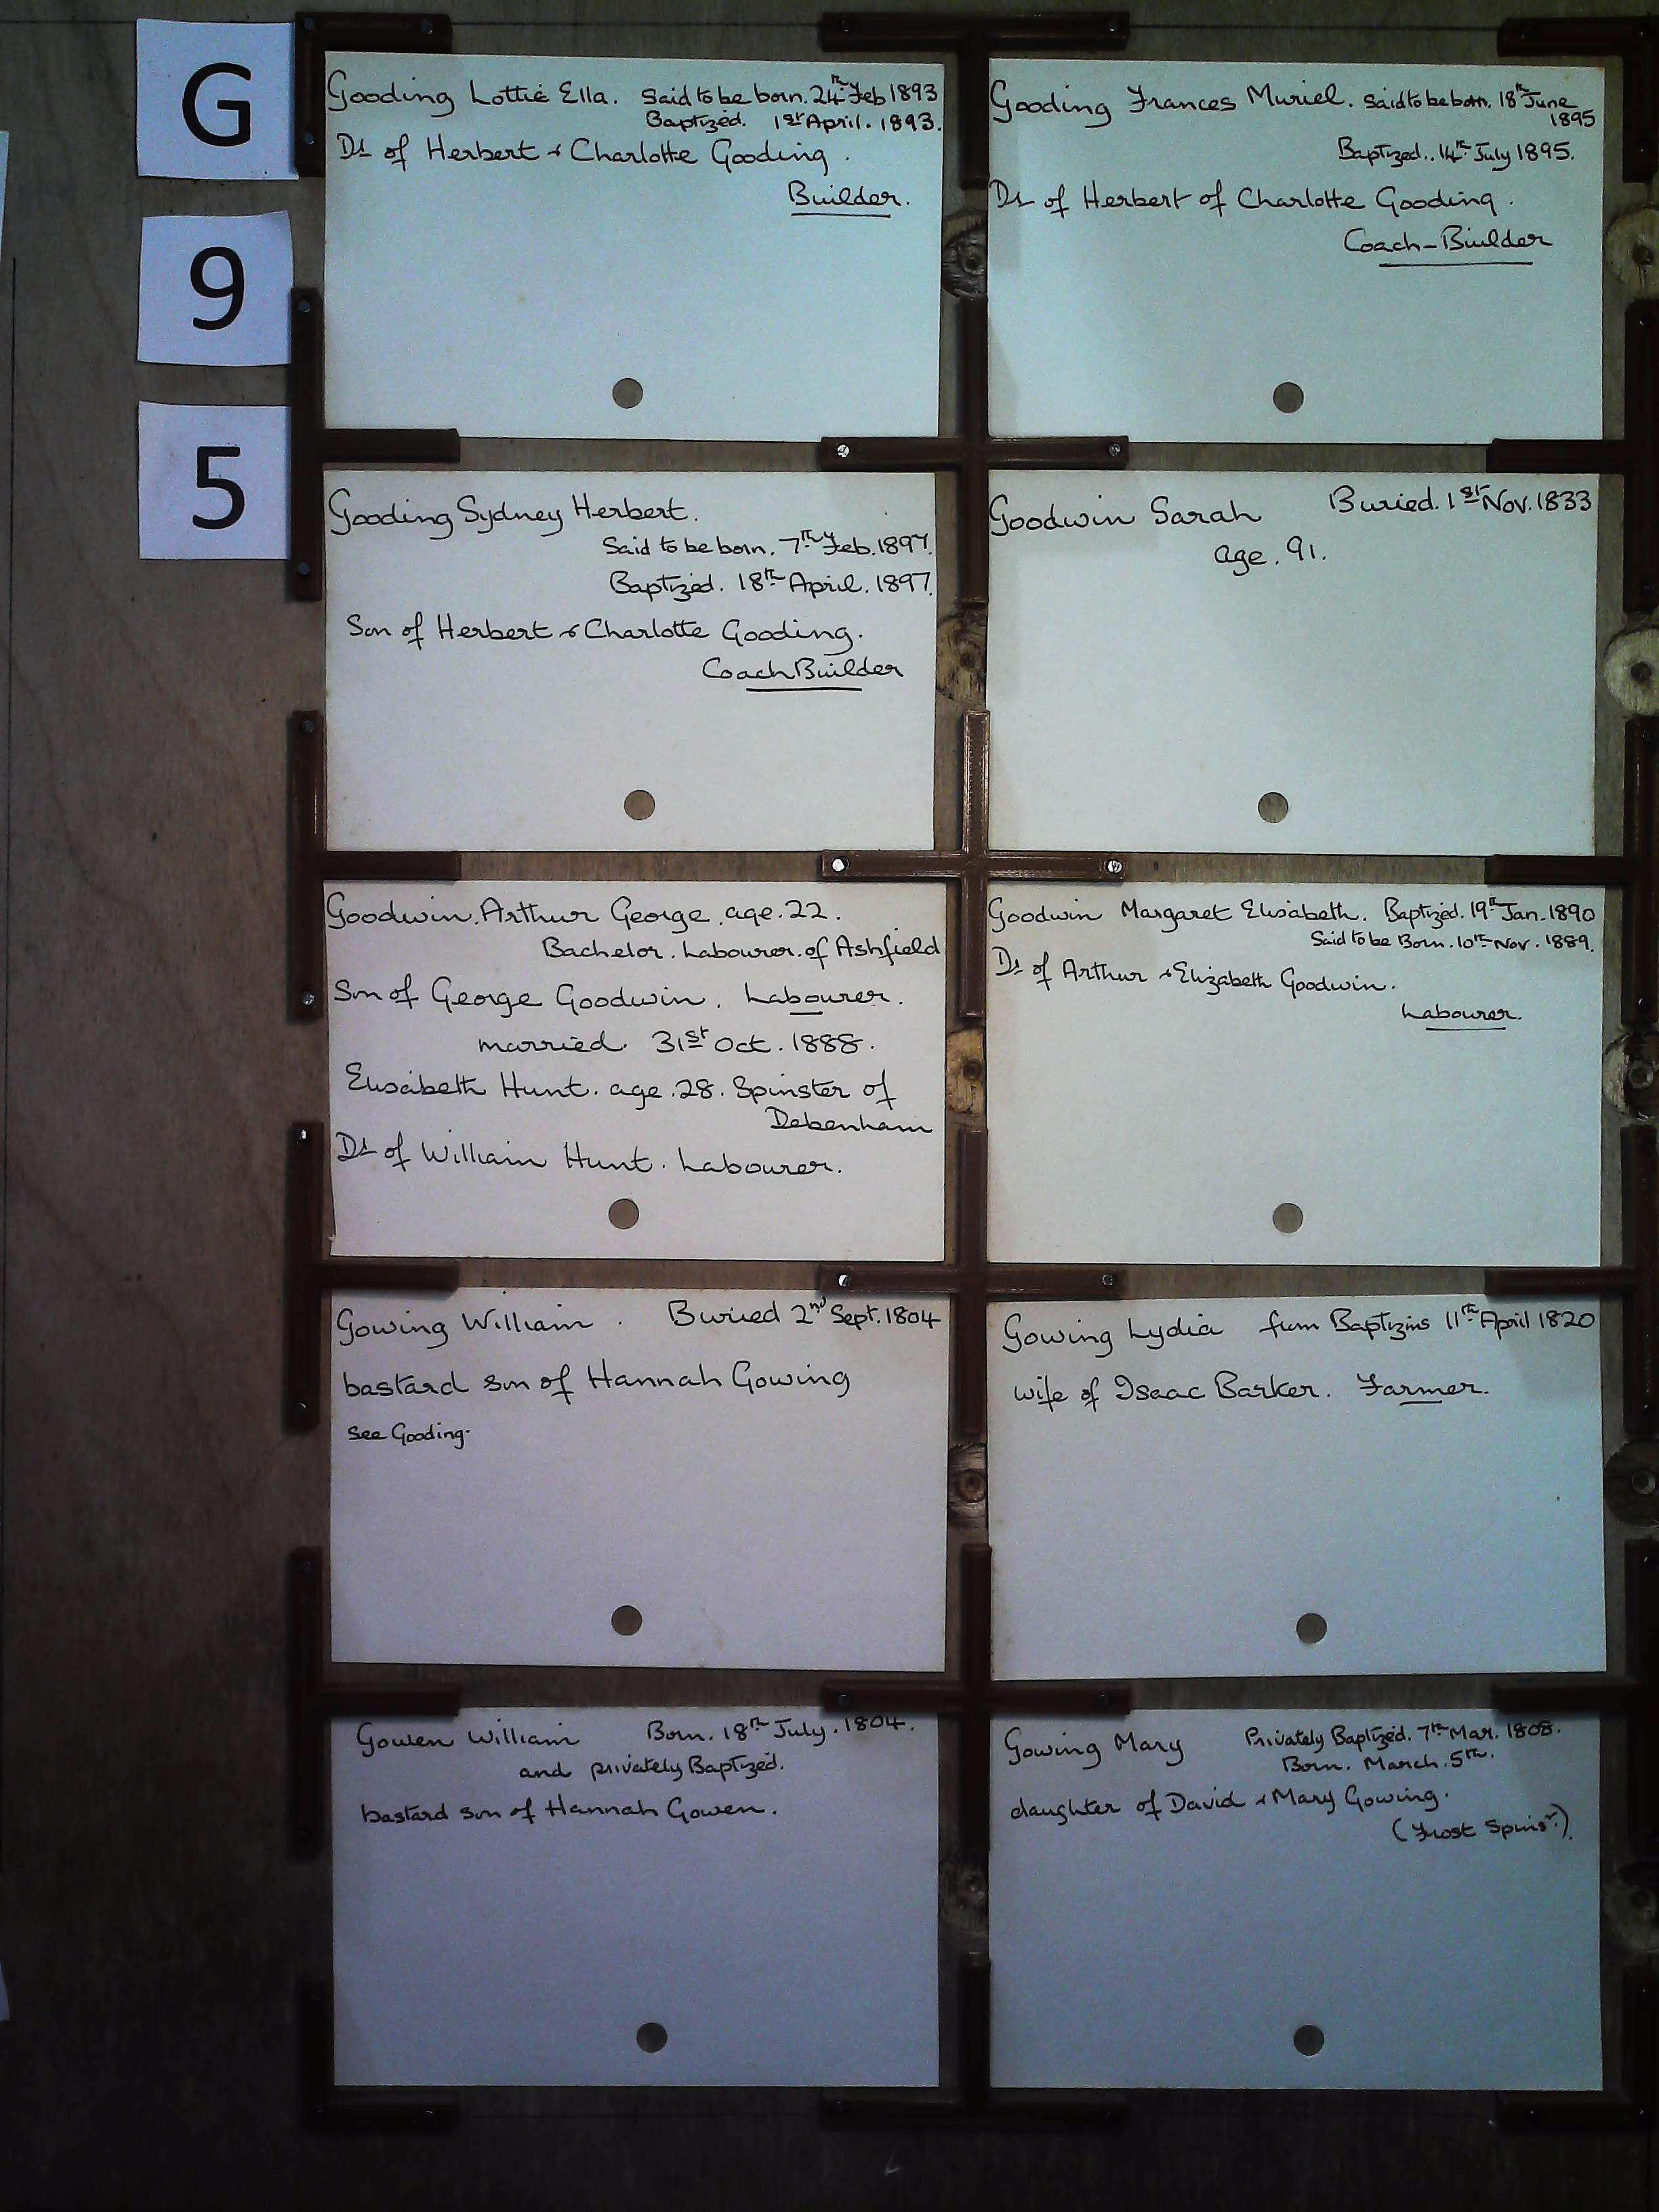 G
9
5
Gooding Lottie Ella. Said to be born. 24th Feb 1893
Baptized. 1st April. 1893.
Dr of Herbert & Charlotte Gooding.
Builder.
Gooding Frances Muriel. Said to be born. 18th June
1895
Baptized.. 14th July 1895.
Dr of Herbert of Charlotte Gooding.
Coach-Builder
Gooding Sydney Herbert.
Said to be born. 7th Feb. 1897.
Baptized. 18th April. 1897.
Son of Herbert & Charlotte Gooding.
Coach Builder
Goodwin Sarah Buried. 1st Nov. 1833
age. 91.
Goodwin. Arthur George. age. 22.
Bachelor. Labourer. of Ashfield
Son of George Goodwin. Labourer.
married. 31st Oct. 1888.
Elisabeth Hunt. age. 28. Spinster of
Debenham
Dr of William Hunt. Labourer.
Goodwin Margaret Elisabeth. Baptized. 19th Jan. 1890
Said to be Born. 10th Nov. 1889.
Dr of Arthur & Elizabeth Goodwin.
Labourer.
Gowing William. Buried 2nd Sept. 1804
bastard son of Hannah Gowing
see Gooding.
Gowing Lydia from Baptizms 11th April 1820
wife of Isaac Barker. Farmer.
Gowen William Born. 18th July. 1804.
and privately Baptized.
bastard son of Hannah Gowen.
Gowing Mary Privately Baptized. 7th Mar. 1808.
Born. March. 5th.
daughter of David & Mary Gowing.
(Frost Spinsr.)